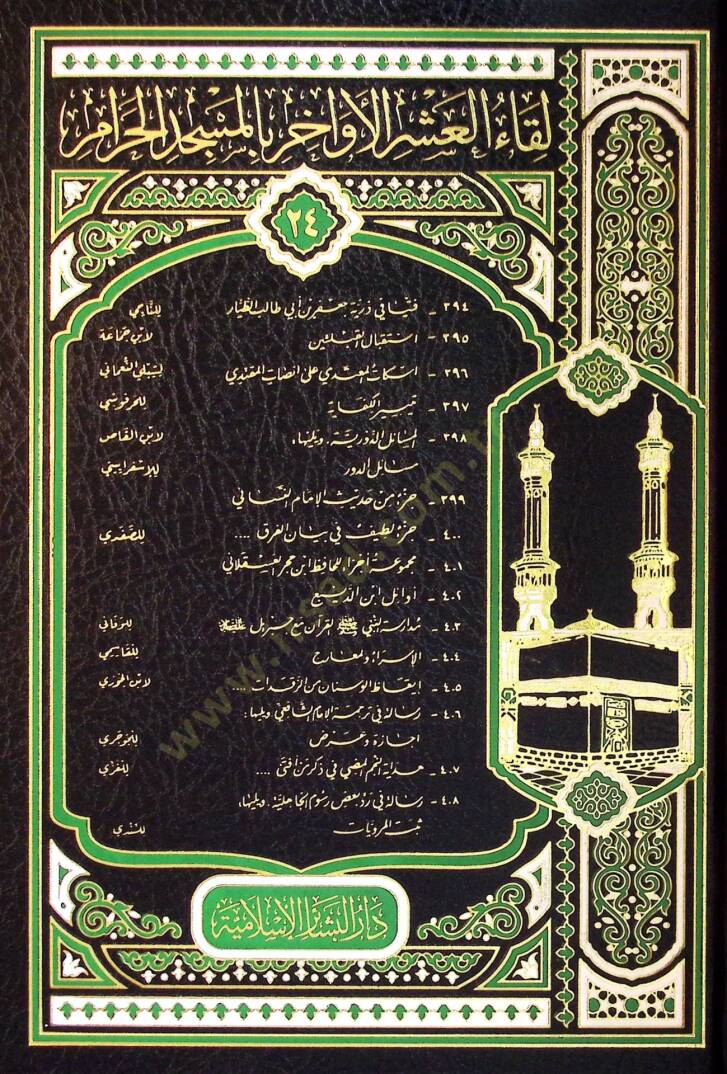 لقاء العشر الأواخر بالمسجد الحرام
٢٤
٣٩٤ - فتيا في ذرية جعفر بن أبي طالب الطيار للتاجي
٣٩٥ - استقبال القبلتين لابن جماعة
٣٩٦ - اسكات المعتدي على انصات المقتدي لشبلي النعماني
٣٩٧ - تيسير الكفاية للحرفوشي
٣٩٨ - المسائل الدورية. ويليها: لابن القاص
مسائل الدور للإسفراييني
٣٩٩ - جزء من حديث الإمام النسائي
٤٠٠ - جزء لطيف في بيان الفرق .... للصفدي
٤٠١ - مجموعة أجزاء للحافظ ابن حجر العسقلاني
٤٠٢ - أوايل ابن الديبع
٤٠٣ - مدارسة النبي ﷺ القرآن مع جبريل للوفائي
٤٠٤ - الإسراء والمعارج للقاسمي
٤٠٥ - إيقاظ الوسنان من الرقدات .... لابن الجوزي
٤٠٦ - رسالة في ترجمة الإمام الشافعي ويليها:
اجازة وعرض للجوجري
٤٠٧ - هداية النجم المضي في ذكر من أفتى .... للغزي
٤٠٨ - رسالة في رد بعض رسوم الجاهلية. ويليها:
ثبت المرويات للسندي
دار البشائر الإسلامية